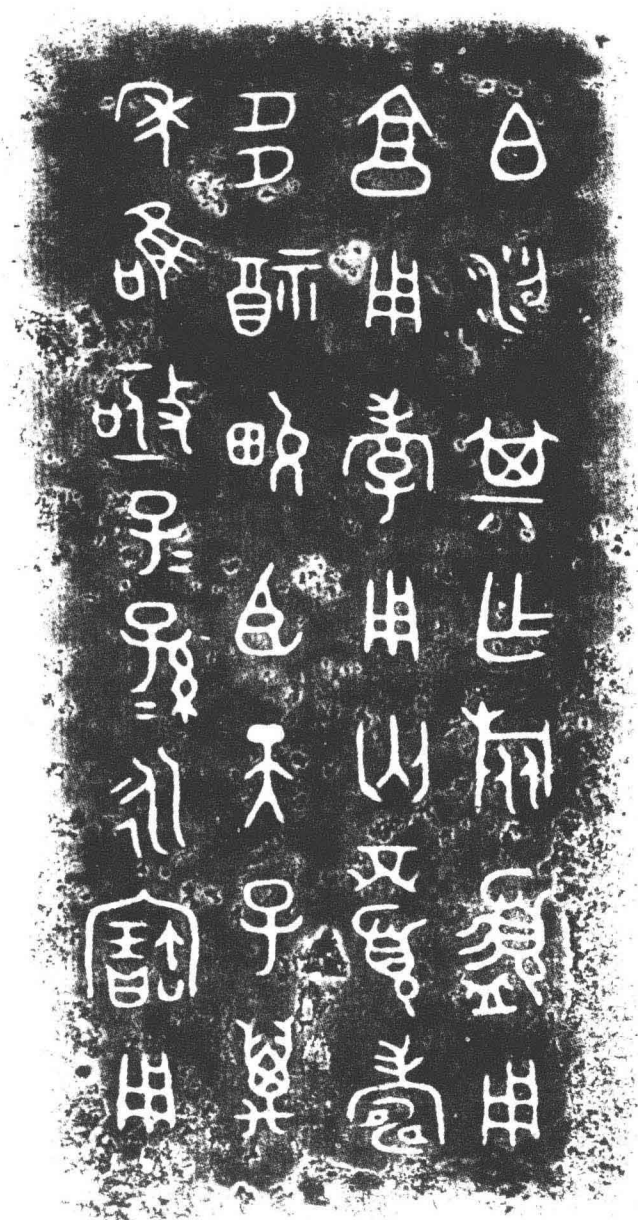 白汈其乍旅盨用
亯用孝用匄眉壽
多福畯臣天子萬
年唯亟子=孫=永寶用